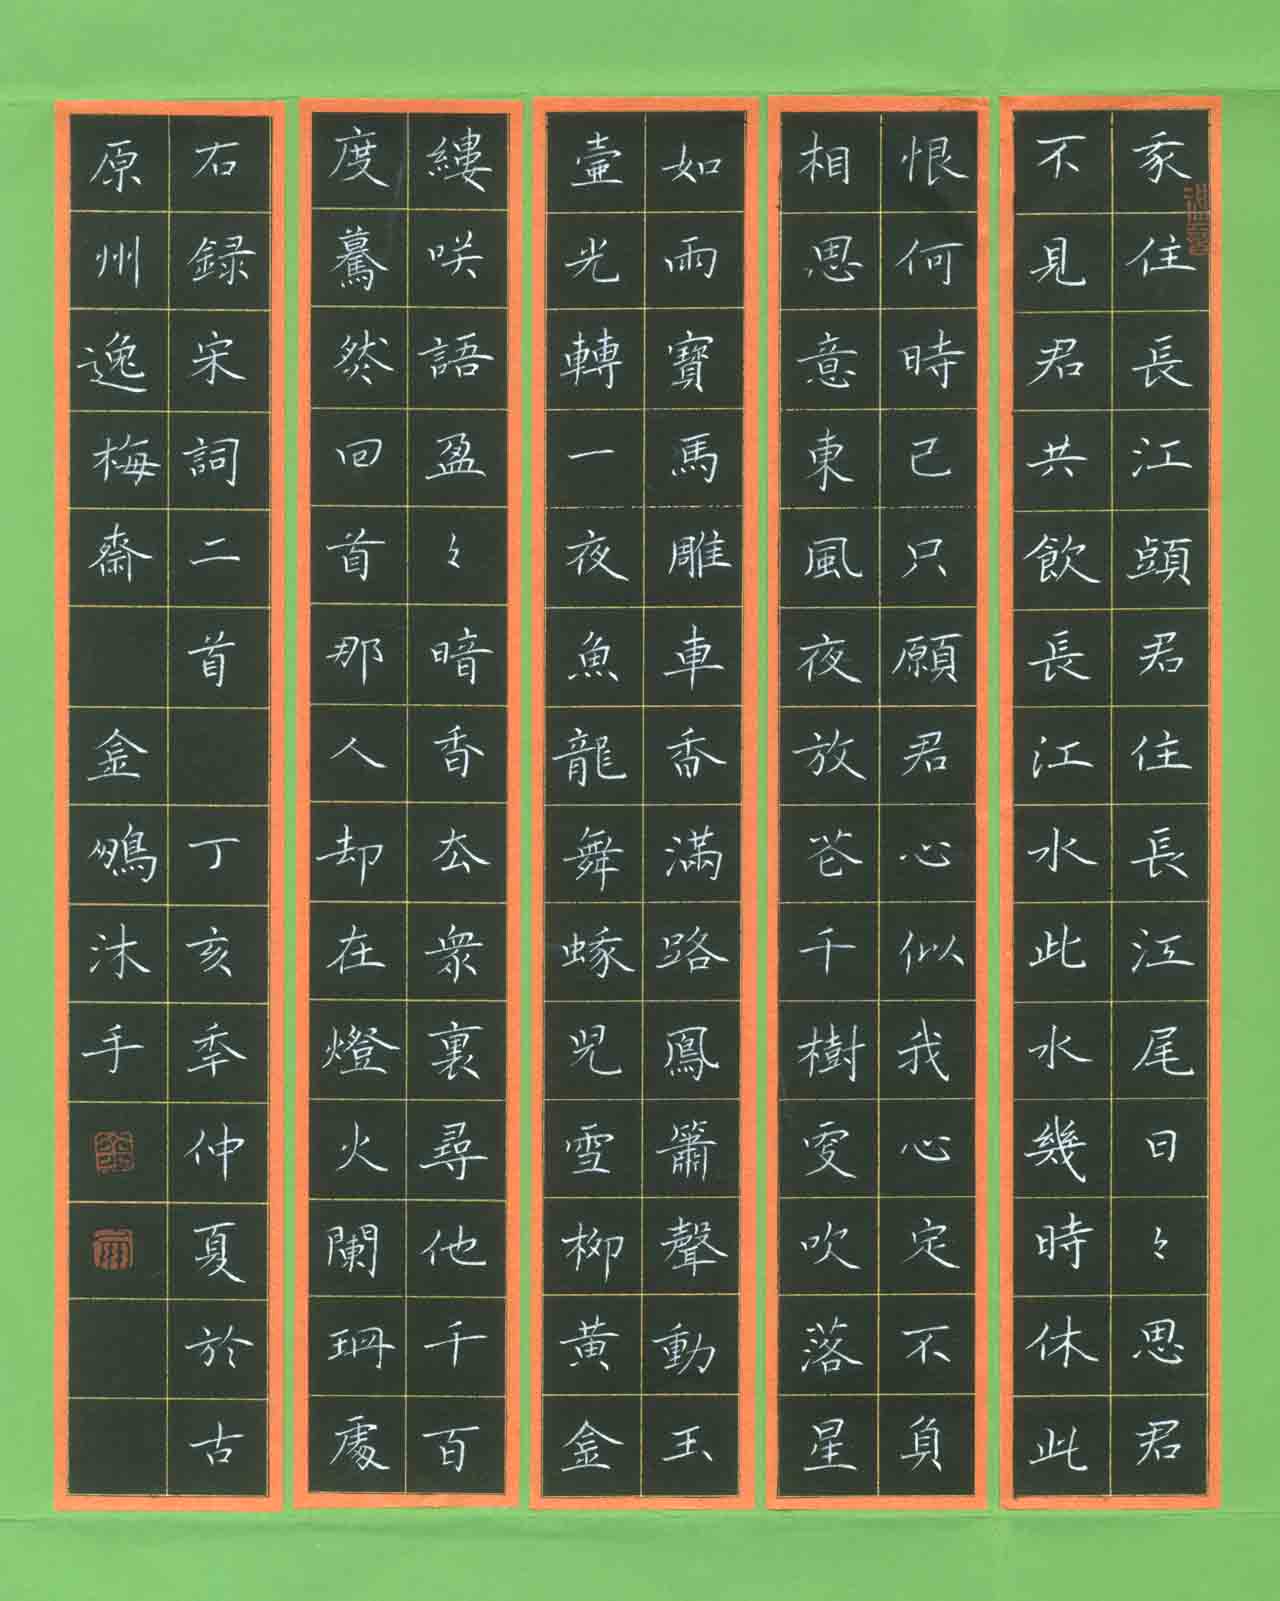 我住長江頭君住長江尾日々思君
不見君共飲長江水此水幾時休此
恨何時已只願君心似我心定不負
相思意東風夜放花千樹更吹落星
如雨寶馬雕車香滿路鳳簫聲動玉
壺光轉一夜魚龍舞蛾兒雪柳黃金
縷咲語盈々暗香去衆裏尋他千百
度驀然回首那人却在燈火闌珊處
右録宋詞二首 丁亥年仲夏於古
原州逸梅齋 金 沐手